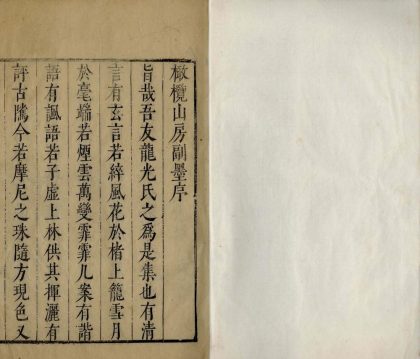 橄欖山房副墨序
旨哉吾友龍光氏之為是集也有清
言有玄言若綷風花於楮上籠雪月
於毫端若煙雲萬變霏霏几案有諧
語有諷語若子虛上林供其揮灑有
評古隲今若摩尼之珠隨方現色又